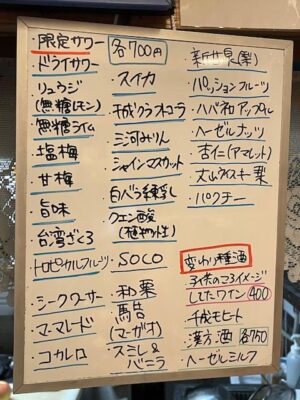 ・限定サワー 各700円
・ドライサワー
・リュウジ
(無糖レモン)
・無糖ライム
・塩梅
・甘梅
・旨味
・台湾ざくろ
・トロピカルフルーツ
・シークワーサー
・マーマレード
・コカレロ
・スイカ
・千成クラフトコーラ
・三河みりん
・シャインマスカット
・クエン酸
・SOCO
・和栗
・馬告
(マーガオ)
・スミレ&
バニラ
・パッションフルーツ
・ハバネロアップル
・ヘーゼルナッツ
・杏仁(アマレット)
・パクチー
変わり種酒
・子供のころイメージ
してたワイン 400
・千成モヒート
・漢方酒 各750
・ヘーゼルミルク